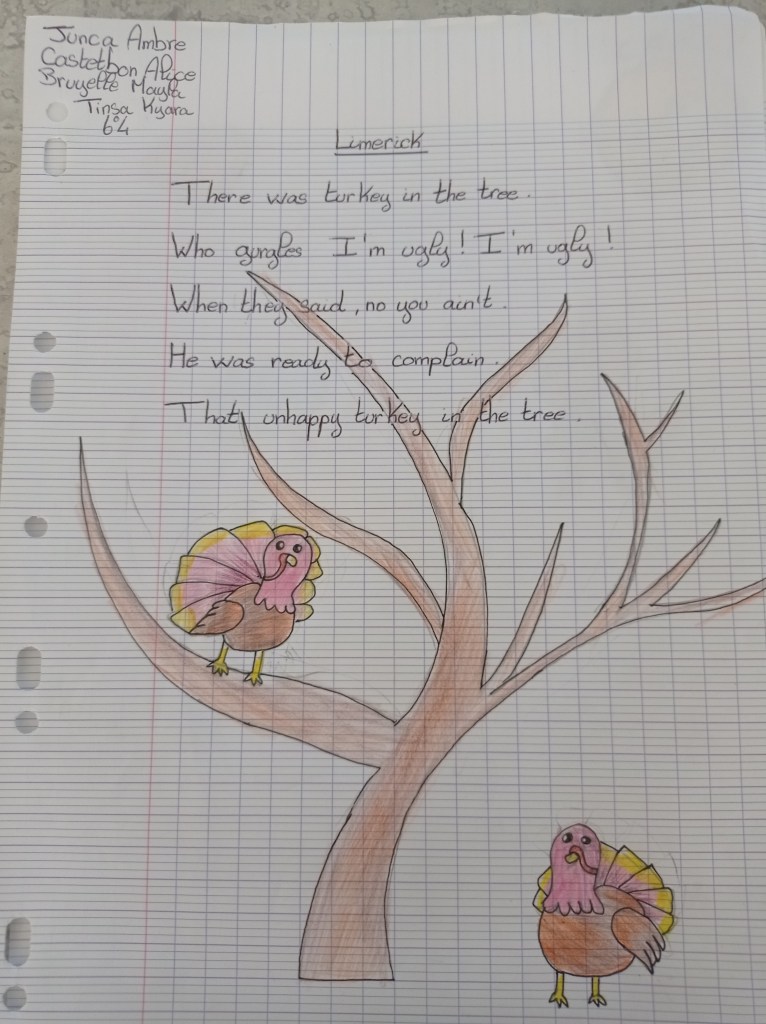 Junca Ambre
Castethon Alice
Bruyette Mayla
Tinsa Kyara
6°4
Limerick
There was turkey in the tree.
Who gurgles I'm ugly! I'm ugly!
When they said, no you ain't.
He was ready to complain.
That unhappy turkey in the tree.